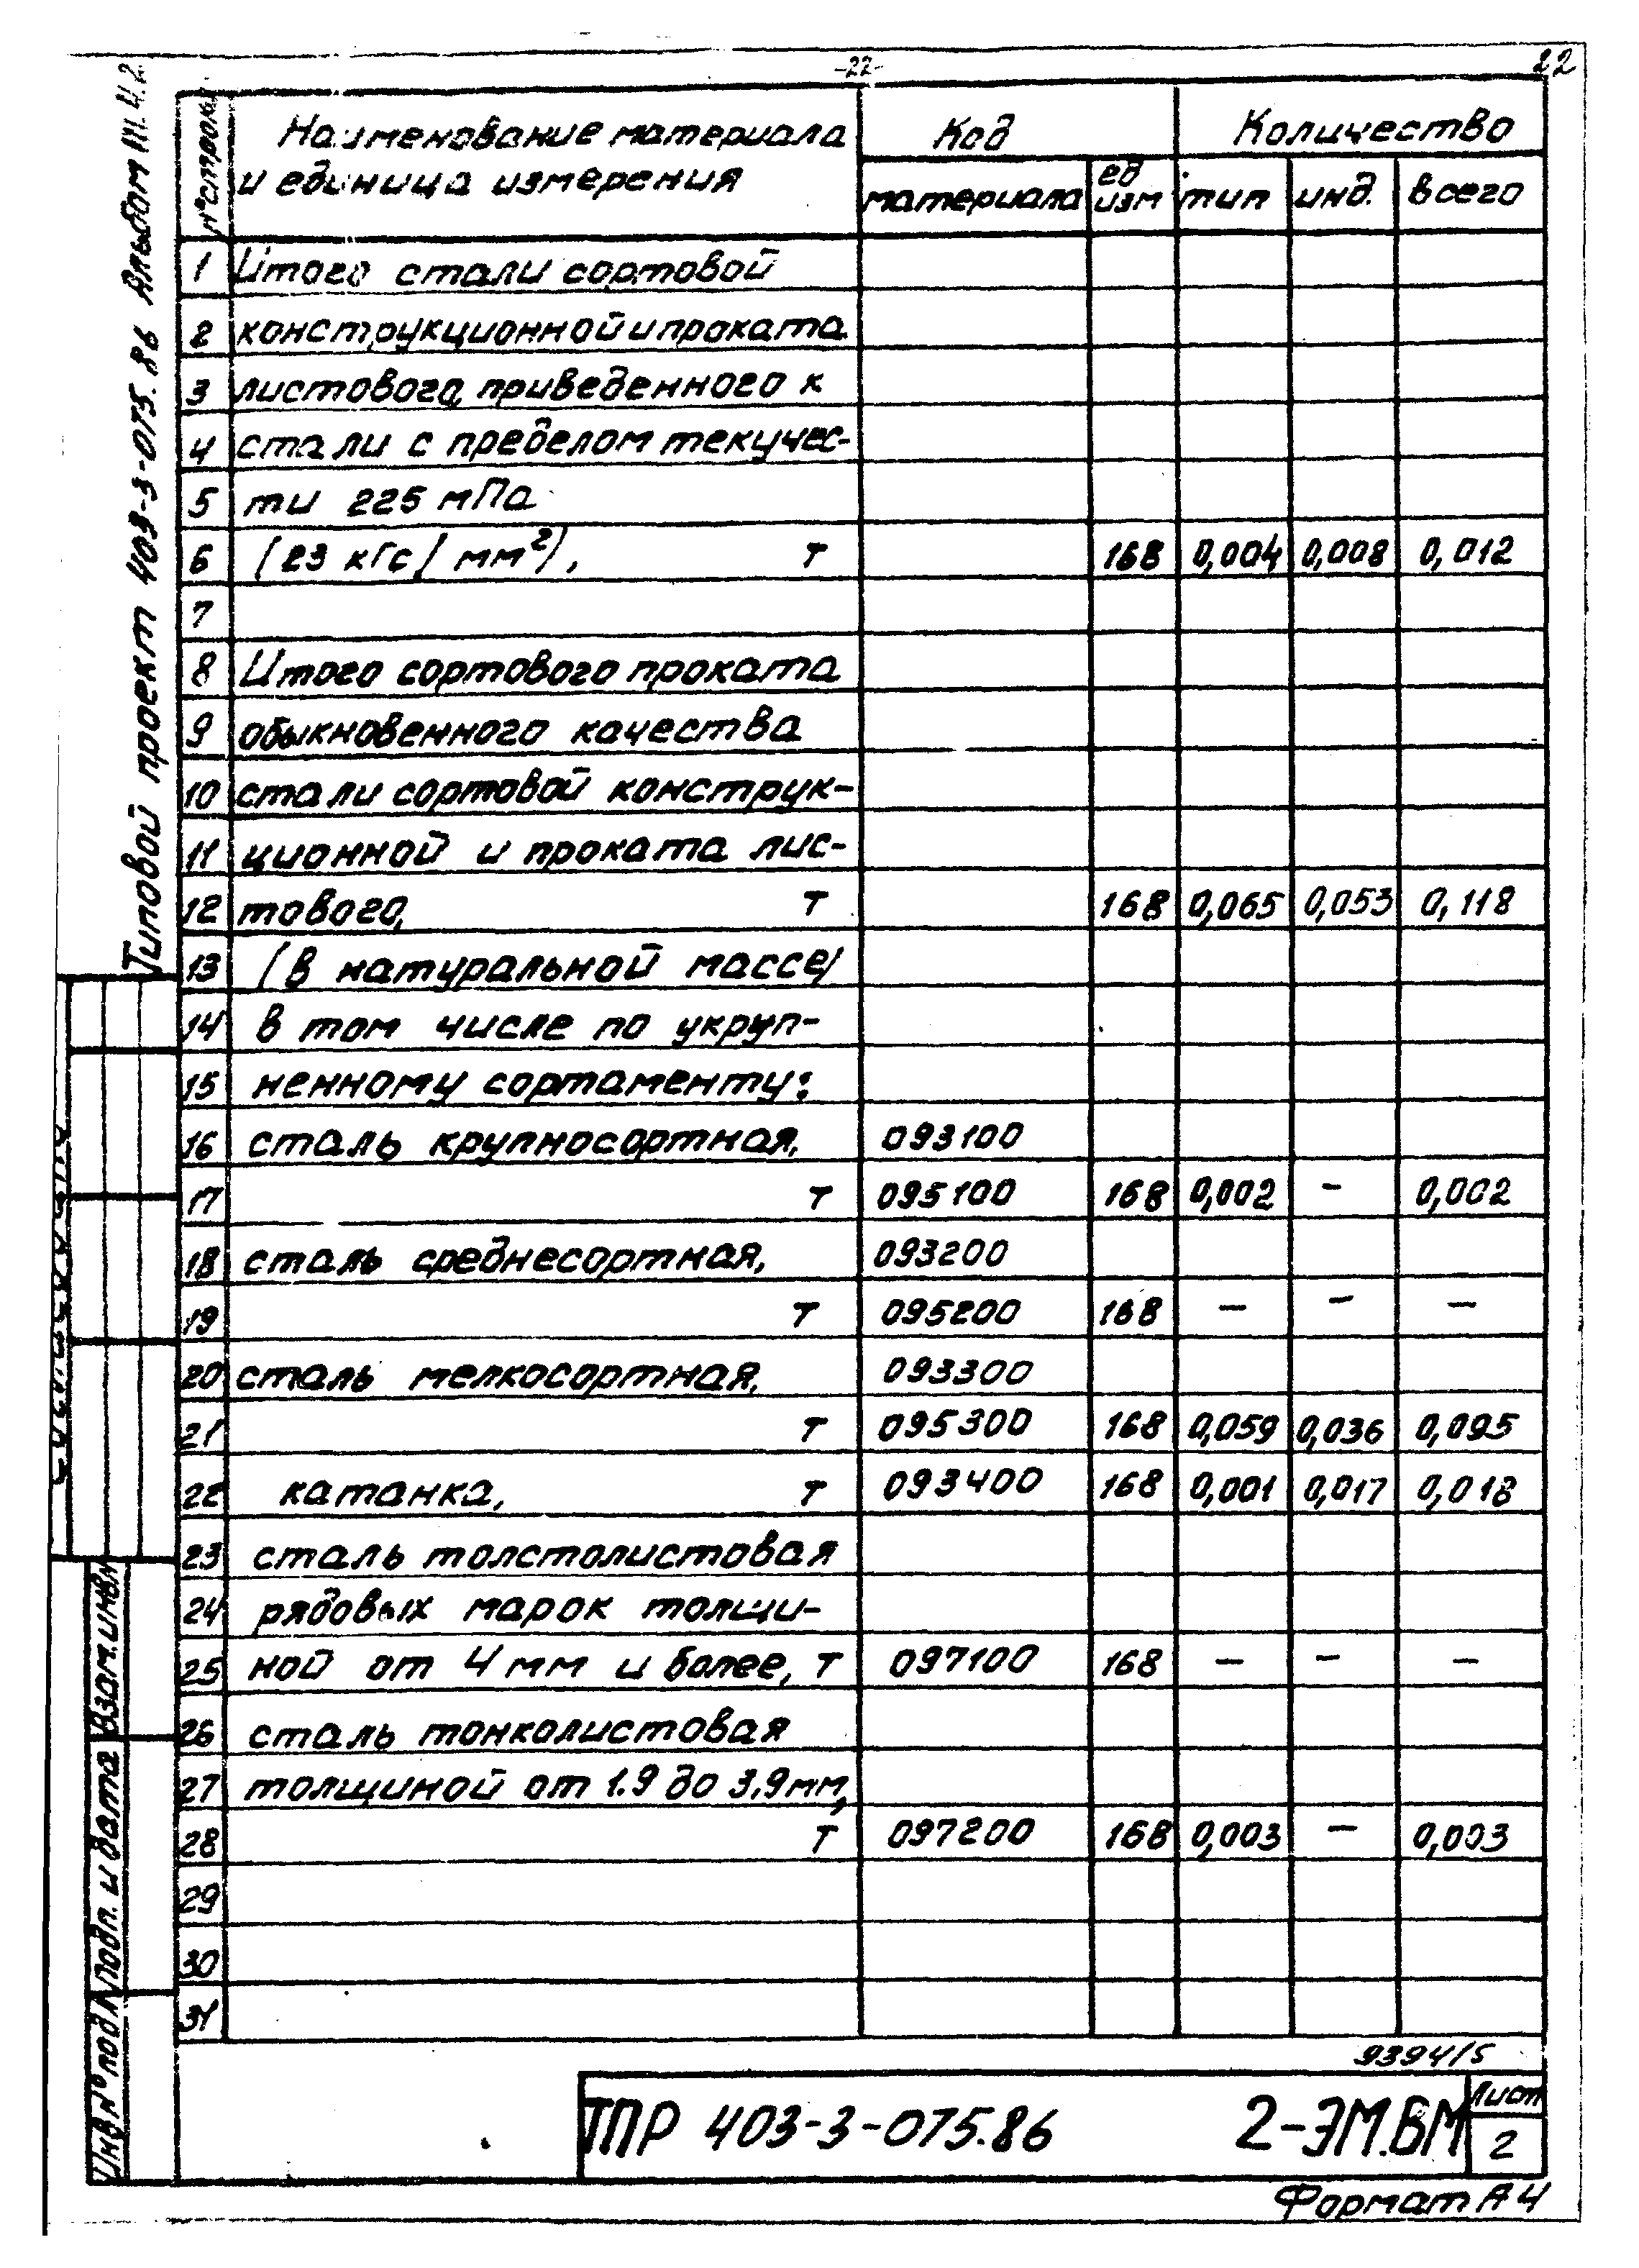 -22-
22
Типовой проект 403-3-075.86 Альбом III.4.2
№ строки
Наименование материала
и единица измерения
Код
Количество
материала
ед
изм
тип
инд.
всего
1 Итого стали сортовой
2 конструкционной и проката
3 листового, приведенного к
4 стали с пределом текучес-
5 ти 225 мПа
6 (23 кГс/мм²), т 168 0,004 0,008 0,012
7
8 Итого сортового проката
9 обыкновенного качества
10 стали сортовой конструк-
11 ционной и проката лис-
12 тового, т 168 0,065 0,053 0,118
13 (в натуральной массе/
14 в том числе по укруп-
15 ненному сортаменту:
16 сталь крупносортная, 093100
17 т 095100 168 0,002 - 0,002
18 сталь среднесортная, 093200
19 т 095200 168 - - -
20 сталь мелкосортная, 093300
21 т 095300 168 0,059 0,036 0,095
22 катанка, т 093400 168 0,001 0,017 0,018
23 сталь толстолистовая
24 рядовых марок толщи-
25 ной от 4 мм и более, т 097100 168 - - -
26 сталь тонколистовая
27 толщиной от 1.9 до 3.9 мм,
28 т 097200 168 0,003 - 0,003
29
30
31
Взам.инв.№
Подп. и дата
Инв.№подл
9394/5
ТПР 403-3-075.86 2-ЭМ.ВМ
Лист
2
Формат А4